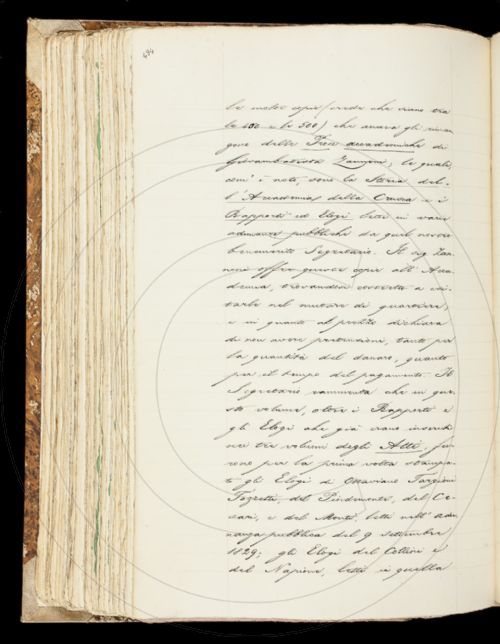 494
le molte copie (crede che siano tra
le 400 e le 500) che aveva gli riman-
gono delle Prose accademiche di
Giovambatista Zannoni, le quali,
com'è noto, sono la Storia del-
l'Accademia della Crusca e i
Rapporti ed Elogi letti in varie
adunanze pubbliche da quel
benemerito Segretario. Il sig. Zan-
noni offre queste copie all'Acca-
demia, trovandosi costretto a
nel mutare di quartiere,
e in quanto al prezzo dichiara
di non avere pretensioni, tanto per
la quantità del danaro, quanto
per il tempo del pagamento. Il
Segretario rammenta che in que-
sto volume, oltre i Rapporti e
gli Elogi che già erano inseriti
nei tre volumi degli Atti, fu-
rono per la prima volta stampa-
ti gli Elogi di Ottaviano Targioni
Tozzetti, del Pindemonte, del Ce-
sari, e del Monti, letti nell'adu-
nanza pubblica del 9 settembre
1829; gli Elogi del Collini e
del Napione, letti in quella